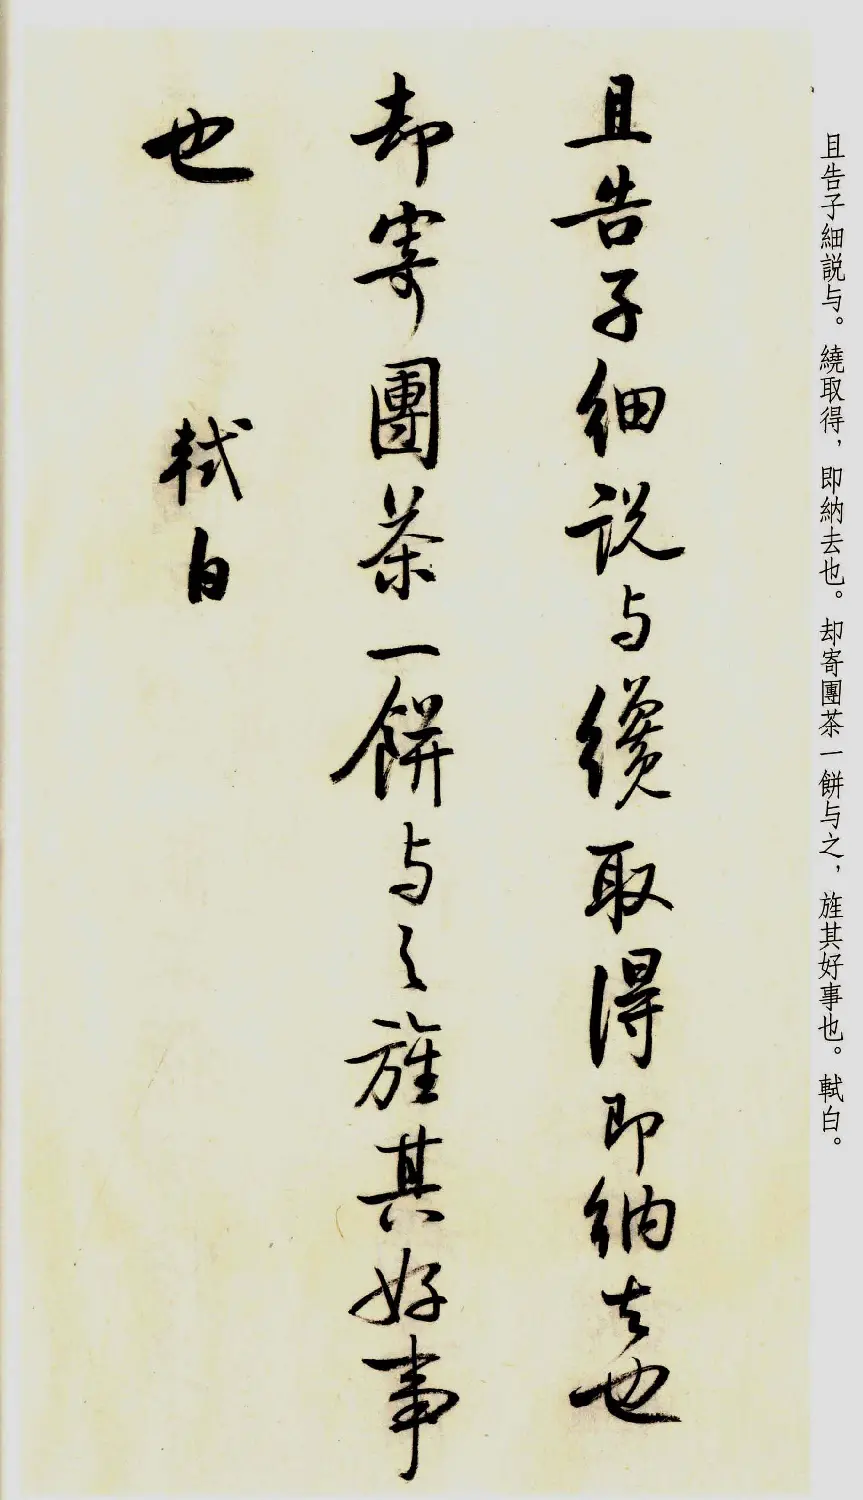 且告子細説与。繞取得，即納去也。却寄團茶一餅与之，旌其好事也。軾白。
且告子細説与纔取得即納去也
却寄團茶一餅与之旌其好事
也 軾白